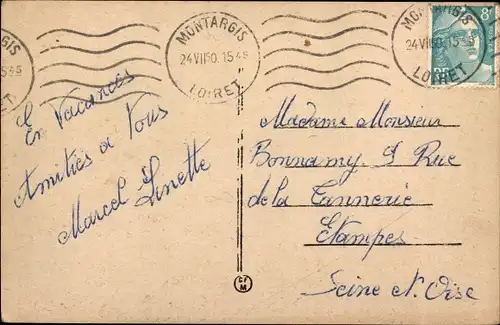 MONTARGIS
24 VII 50. 15 45
LOIRET
MONTARGIS
24 VII 50. 15
LOIRET
15 45
8F
En Vacances
Amitiés à Vous
Marcel Ginette
Madame Monsieur
Bonnamy. 9 Rue
de la Tannerie
Etampes
Seine N. Oise
M